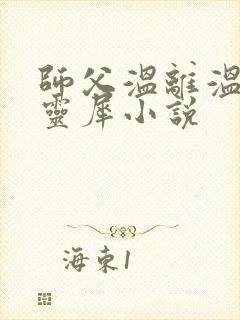 師父溫離溫
靈犀小說
海束1